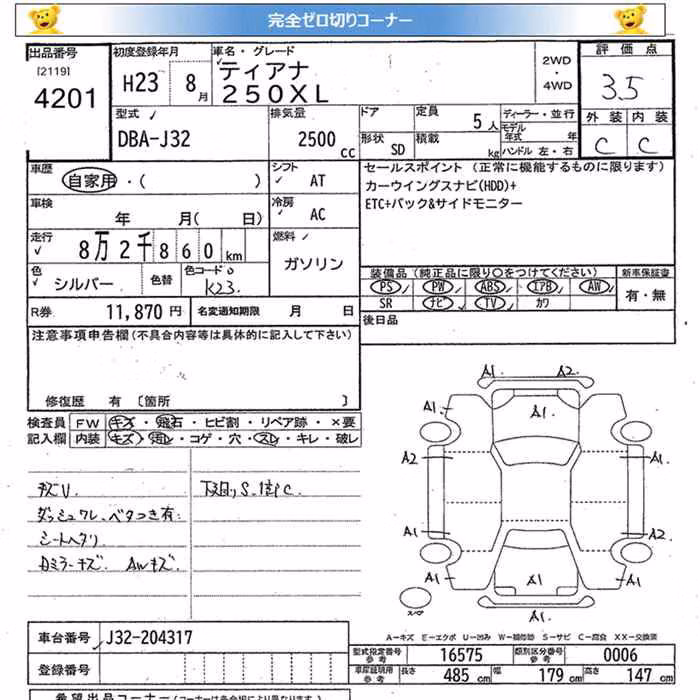 完全ゼロ切りコーナー
出品番号
[2119]
4201
初度登録年月
H23 8月
車名・グレード
ティアナ
250XL
2WD
・
4WD
評価点
3.5
外装 内装
C C
型式
DBA-J32
排気量
2500cc
ドア
形状 SD
定員 5人
積載 kg
ディーラー・並行
モデル年式 年
ハンドル 左・右
車歴
自家用・( )
シフト
AT
セールスポイント (正常に機能するものに限ります)
カーウイングスナビ(HDD)+
ETC+バック&サイドモニター
車検
年 月( 日)
冷房
AC
走行
8万2千860km
燃料
ガソリン
色
シルバー
色替
色コード
K23
装備品 (純正品に限り○をつけてください)
PS PW ABS エアB AW
SR ナビ TV カワ
新車保証書
有・無
R券 11,870円
名変通知期限 月 日
後日品
注意事項申告欄(不具合内容等は具体的に記入して下さい)
修復歴 有 [箇所 ]
検査員
記入欄
FW キズ・飛石・ヒビ割・リペア跡・×要
内装 キズ・汚レ・コゲ・穴・スレ・キレ・破レ
キズU.
ダッシュワレ、ベタつき有.
シートヘタリ
Rミラーキズ. AWキズ.
下廻りS.1部C.
A1 A2
A1 A1 A1
A2 A1
A1 A2
A1 A1 A1
A1
スペア
A-キズ E-エクボ U-凹み W-補修跡 S-サビ C-腐食 XX-交換済
車台番号
J32-204317
登録番号
型式指定番号
参考
16575
類別区分番号
参考
0006
車庫証明用
参考
長さ 485cm 幅 179cm 高さ 147cm
希望出品コーナー